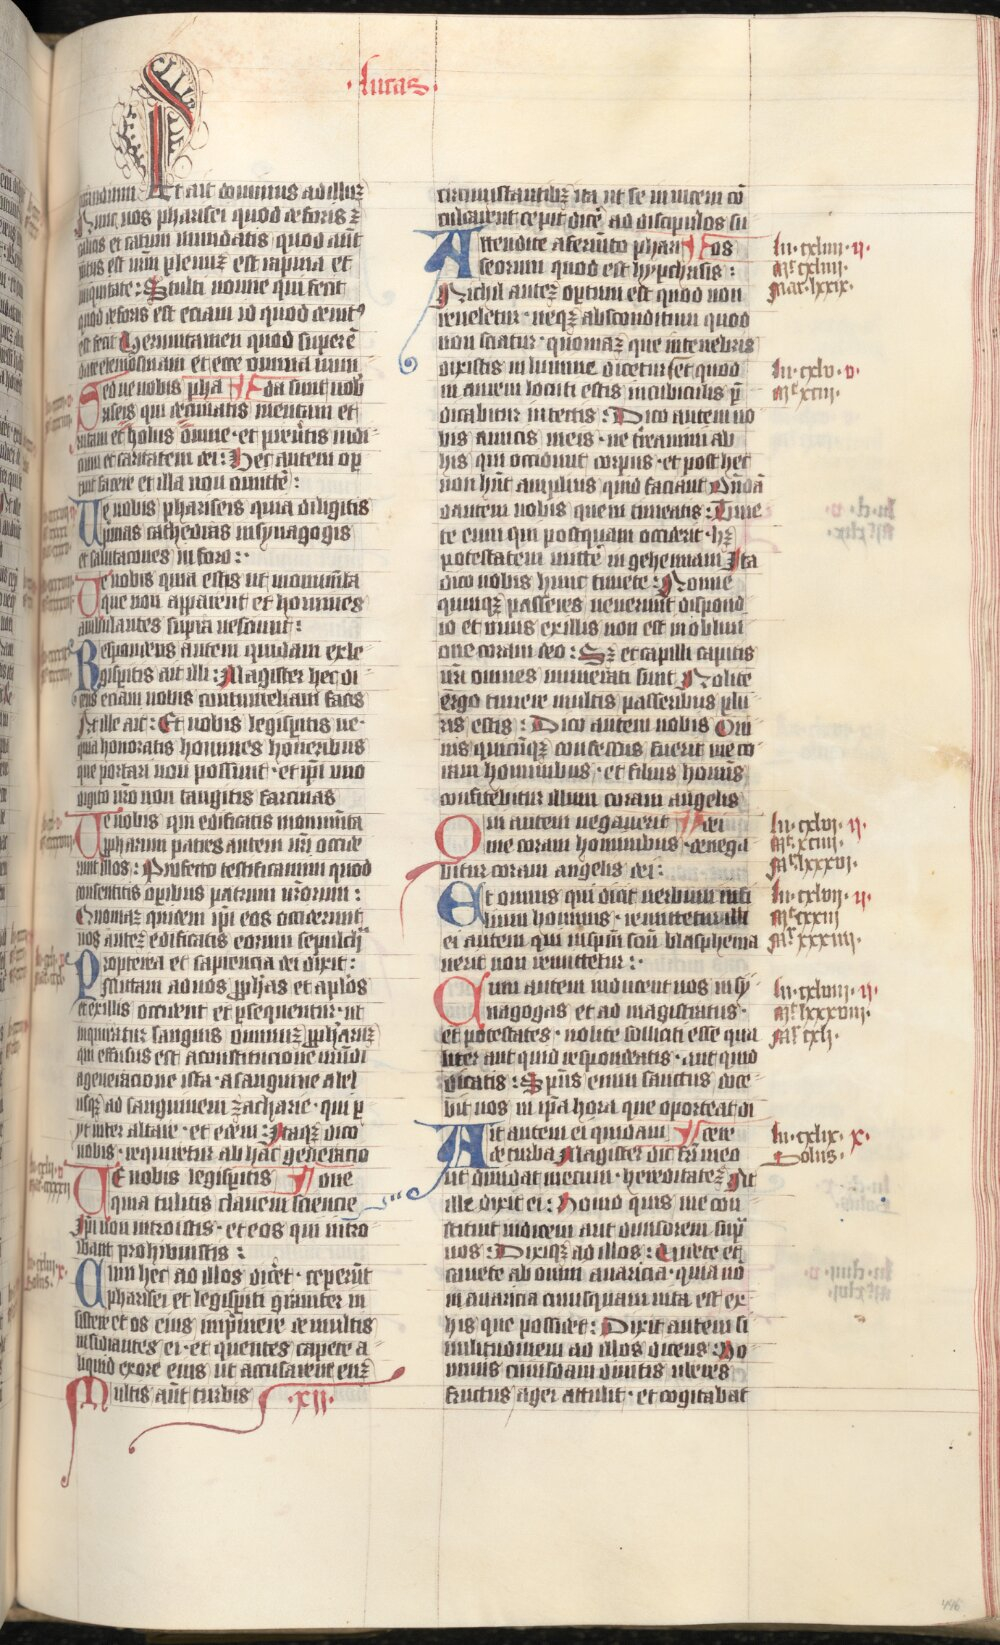 ·lucas·
prandium Et ait dominus ad illuʒ
Nunc vos pharisei quod de foris ʒ
calicis et catini mundatis quod aūt
intus est vrm̄ plenuʒ est rapina et
iniquitate: Stulti nonne qui fecit
quod de foris est eciam id quod de intꝰ
est fecit Verumtamen quod superē
date elemosinam et ecce omnia mun
Sed ve nobis pha da sunt nob
riseis qui decimatis mentam et
rutam et holus omne· et preritis iudi
cium et caritatem dei: Hec autem op
tuit facere et illa non omittē:
Ve nobis phariseis quia diligitis
primas cathedras in synagogis
et salutaciones in foro:·
Ve nobis quia estis ut monumēta
que non apparent et homines
ambulantes supra nesciunt:
Respondens autem quidam ex le
gisperitis ait illi: Magister hec di
cens eciam nobis contumeliam facis
At ille ait: Et nobis legisperitis ve·
quia honoratis homines honeribus
que portari non possunt· et ip̄i uno
digito vrō non tangitis sarcinas
Ve nobis qui edificatis monumēta
prophetarum patres autem vrī occide
runt illos: Profecto testificamini quod
consentitis operibus patrum vrōrum:
Quoniaʒ quidem ip̄i eos occiderunt
vos auteʒ edificatis eorum sepulcra
Propterea et sapiencia dei dixit:
Mittam ad nos prophetas et apostolos
et ex illis occident et persequentur· ut
inquiratur sanguis omniuʒ prophetaruʒ
qui effusus est a constitucione mūdi
a generacione ista· a sanguine abel
usqʒ ad sanguinem zacharie· qui p
yt inter altare· et edem: Itaqʒ dico
vobis· requiretur ab hac generacio
Ve nobis legisperitis ne
quia tulistis clauem sciencie
Ip̄i non introistis· et eos qui intro
ibant prohibuistis:
Cum hec ad illos diceret· ceperūt
pharisei et legisperiti grauiter in
sistere et os eius imprimere de multis
insidiantes ei· et querentes capere a
liquid ex ore eius ut accusarent euʒ
Multis aūt turbis ·xii·
circumstantibuʒ ita ut se inuicem cō
culcarent cepit dicē ad discipulos su
Attendite a fermēto phari os
seorum quod est hypcrisis:
Nichil auteʒ opertum est quod non
reueletur· neqʒ absconditum quod
non sciatur· quoniaʒ que in tenebris
dixistis in lumine dicetur et quod
in aurem locuti estis in cubiculis p̄
dicabitur in tectis: Dico autem uo
bis amicis meis· ne terreamini ab
his qui occidunt corpus· et post hec
non hn̄t amplius quid faciant Ostēdā
autem nobis quem timeatis: Time
te eum qui postquam occiderit· hʒ
potestatem mittē in gehennam Ita
dico nobis hunc timete: Nonne
quinqʒ passeres veneunt dispondi
io et unus ex illis non est in obliui
one coram deo: Sʒ et capilli capitis
vrī omnes numerati sunt Nolite
ergo timere multis passeribus plu
ris estis: Dico autem nobis Om
nis quicūqʒ confessus fuerit me co
ram hominibus· et filius hominis
confitebitur illum coram angelis
Qui autem negauerit dei
me coram hominibus· denega
bitur coram angelis dei:
Et omnis qui dicit verbum in fi
lium hominis· remittetur illi
ei autem qui in spm̄ scm̄ blasphema
uerit non remittetur:·
Cum autem inducent vos in sy
nagogas et ad magistratus·
et potestates· nolite solliciti esse qua
liter aut quid respondeatis· aut quid
dicatis: Spūs enim sanctus doce
bit vos in ip̄a hora que oporteat di
Ait autem ei quidam cere
de turba Magister dic fr̄i meo
ut diuidat mecum· hereditateʒ At
ille dixit ei: Homo quis me con
stituit iudicem aut diuisorem sup̄
vos: Dixitqʒ ad illos: Videte et
cauete ab omni auaricia· quia nō
in auaricia cuiusquam vita est ex
his que possidet: Dixit autem si
militudinem ad illos dicens: Ho
minis cuiusdam diuitis uberes
fructus ager attulit· et cogitabat
lu·cxliiii·ii·
Mr cxliiii·
Mar·lxxix·
lu·cxlv·v·
Mt xciii·
lu·cxlvi·ii·
Mt·xciiii·
Mr lxxxvi·
lu·cxlvii·ii·
Mt cxxiii
Mr xxxiiii·
lu·cxlviii·ii·
Mt lxxxviii·
Mr cxli·
lu·cxlix·x·
Solus·
446